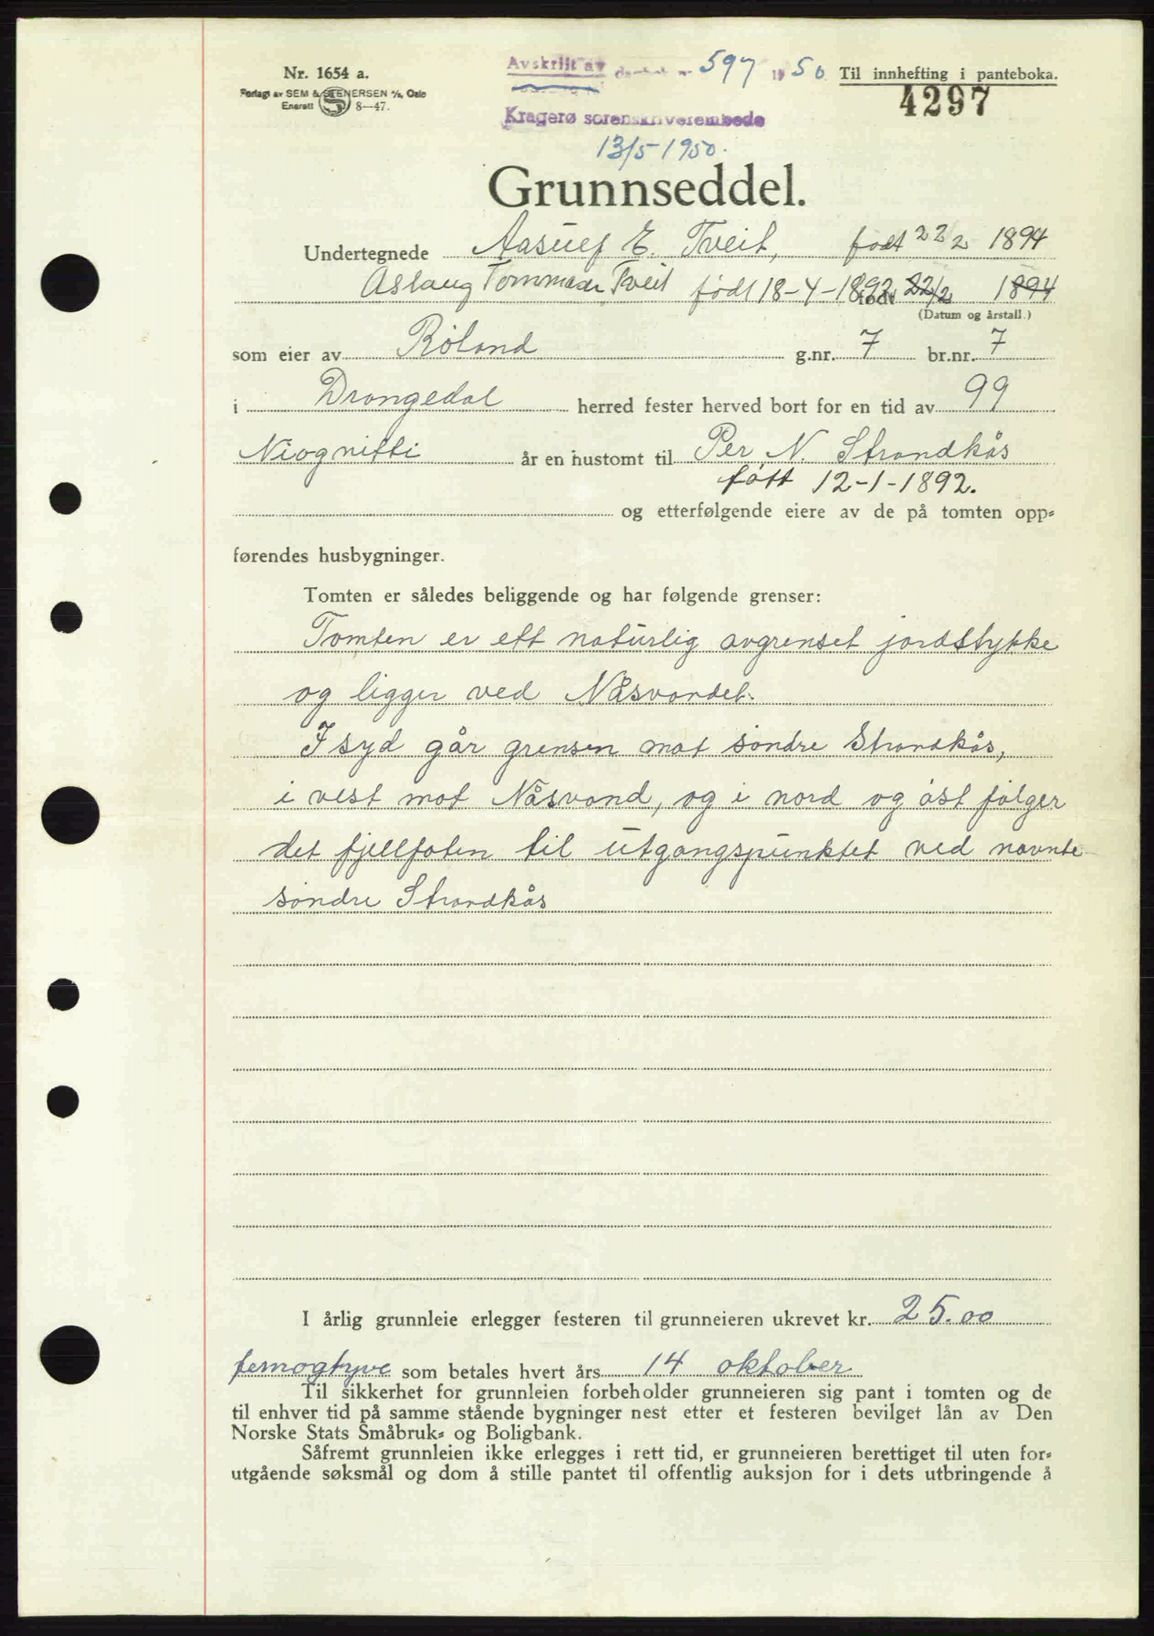 Nr. 1654 a.
Forlagt av SEM & STENERSEN A/S, Oslo
Enerett S 8—47.
Avskrift av dagbok nr 597 1950
Til innhefting i panteboka.
4297
Kragerø sorenskriverembede
13/5-1950.
Grunnseddel.
Undertegnede Aasulf E. Tveit, født 22/2 1894
Aslaug Tveit født 18-4-1892 født 22/2 1894
(Datum og årstall.)
som eier av Röland g.nr. 7 br.nr. 7
i Drangedal herred fester herved bort for en tid av 99
Niognitti år en hustomt til Per N. Strandkås
født 12-1-1892.
og etterfølgende eiere av de på tomten opp-
førendes husbygninger.
Tomten er således beliggende og har følgende grenser:
Tomten er ett naturlig avgrenset jordstykke
og ligger ved Nåsvandet.
I syd går grensen mot söndre Strandkås,
i vest mot Nåsvand, og i nord og öst fölger
det fjellfoten til utgangspunktet ved navnte
söndre Strandkås
I årlig grunnleie erlegger festeren til grunneieren ukrevet kr. 25.00
femogtyve som betales hvert års 14 oktober
Til sikkerhet for grunnleien forbeholder grunneieren sig pant i tomten og de
til enhver tid på samme stående bygninger nest etter et festeren bevilget lån av Den
Norske Stats Småbruk- og Boligbank.
Såfremt grunnleien ikke erlegges i rett tid, er grunneieren berettiget til uten for-
utgående søksmål og dom å stille pantet til offentlig auksjon for i dets utbringende å